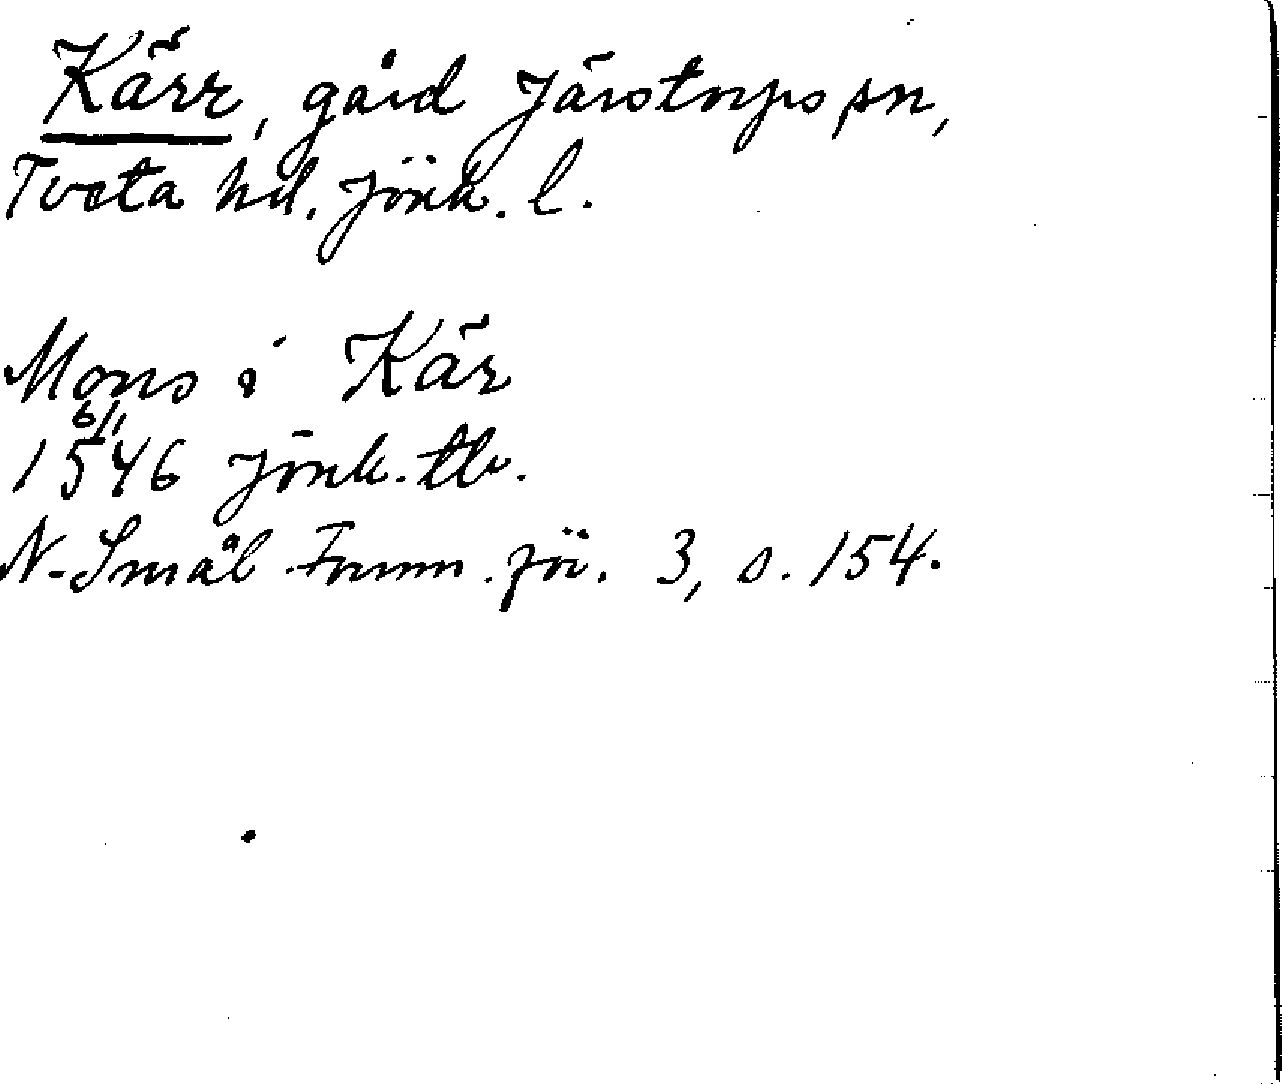 Kärr, gård Järstorps sn,
Tveta hd. Jönk. l.
Mons i Kär
6/11
1546 Jönk. tb.
N. Smål Fornm. för. 3, s. 154.